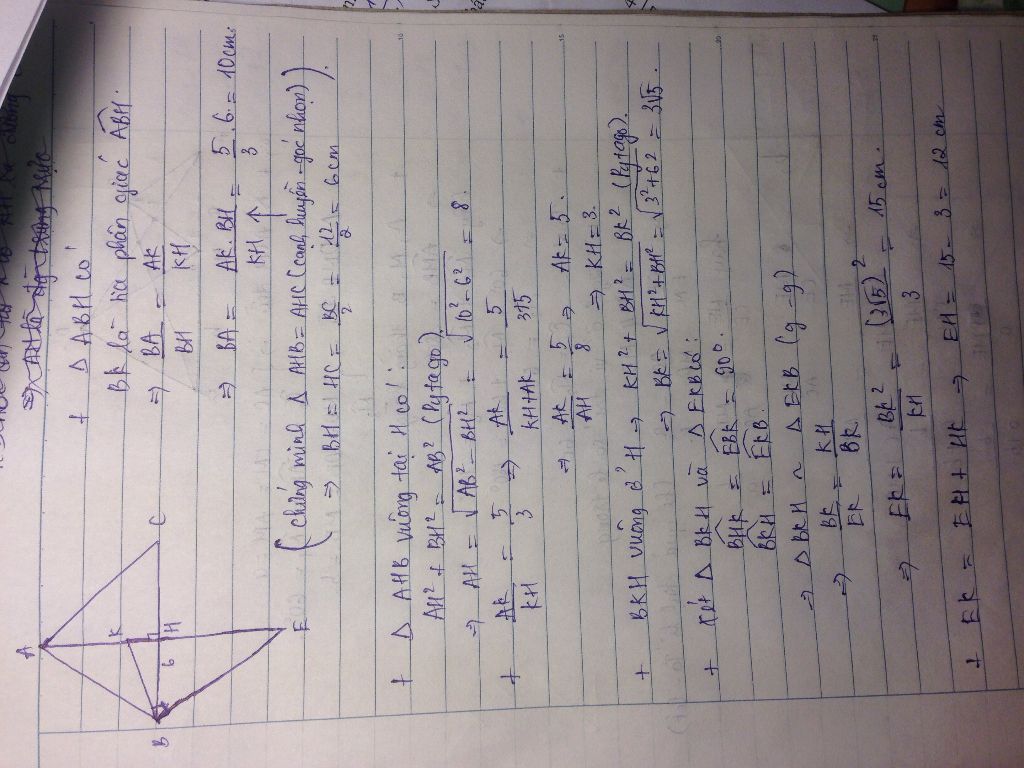 ⇒ AH là
A
K
B
6
H
C
E
+ Δ ABH có
BK là tia phân giác ABH.
⇒ BA/BH = AK/KH
⇒ BA = AK.BH/KH = 5/3 . 6 = 10cm.
(Chứng minh Δ AHB = AHC (cạnh huyền - góc nhọn)
⇒ BH = HC = BC/2 = 12/2 = 6 cm ).
+ Δ AHB vuông tại H có:
AH² + BH² = AB² (Pytago)
⇒ AH = √AB² - BH² = √10² - 6² = 8.
+ AK/KH = 5/3 ⇒ AK/KH+AK = 5/3+5
⇒ AK/AH = 5/8 ⇒ AK = 5.
⇒ KH = 3.
+ BKH vuông ở H ⇒ KH² + BH² = BK² (Pytago).
⇒ BK = √KH² + BH² = √3² + 6² = 3√5.
+ Xét Δ BKH và Δ EKB có:
BHK = EBK = 90°.
BKH = EKB.
⇒ Δ BKH ~ Δ EKB (g-g)
⇒ BK/EK = KH/BK
⇒ EK = BK²/KH = (3√5)²/3 = 15 cm.
+ EK = EH + HK ⇒ EH = 15 - 3 = 12 cm